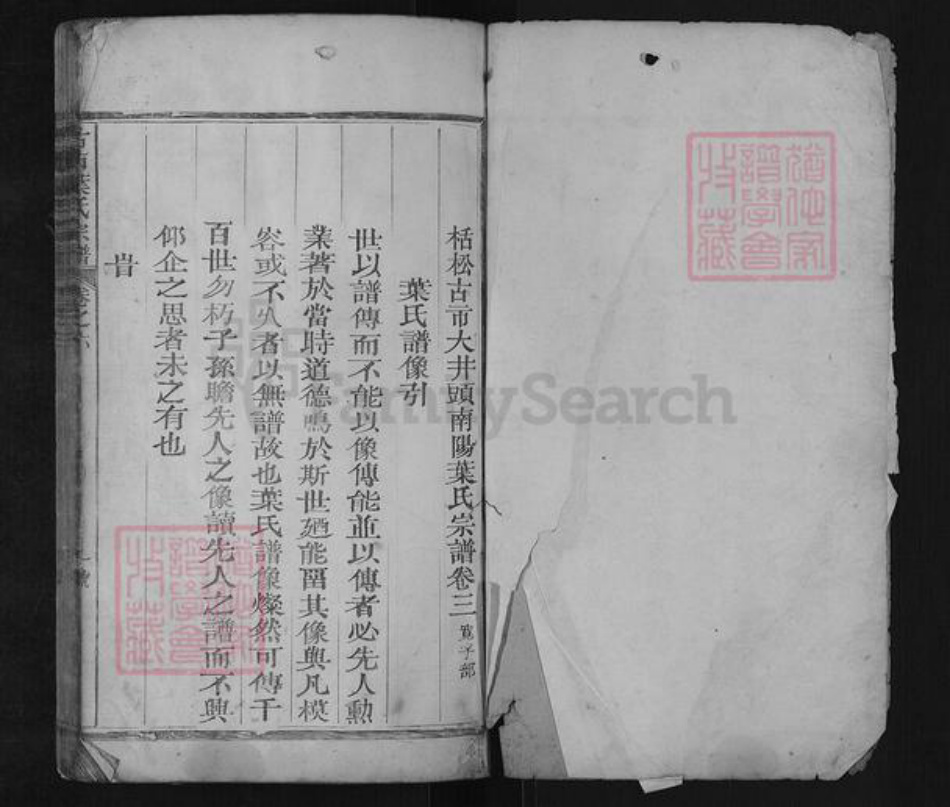 栝松古市大井頭南陽葉氏宗譜卷三
葉氏譜像引
世以譜傳而不能以像傳能並以傳者必先人勳
業著於當時道德鳴於斯世廼能畱其像與凡模
容或不火者以無譜故也葉氏譜像燦然可傳千
百世勿朽子孫瞻先人之像讀先人之譜而不興
仰企之思者未之有也
旹
葉氏宗譜
卷之六
譜學會
收藏
FamilySearch